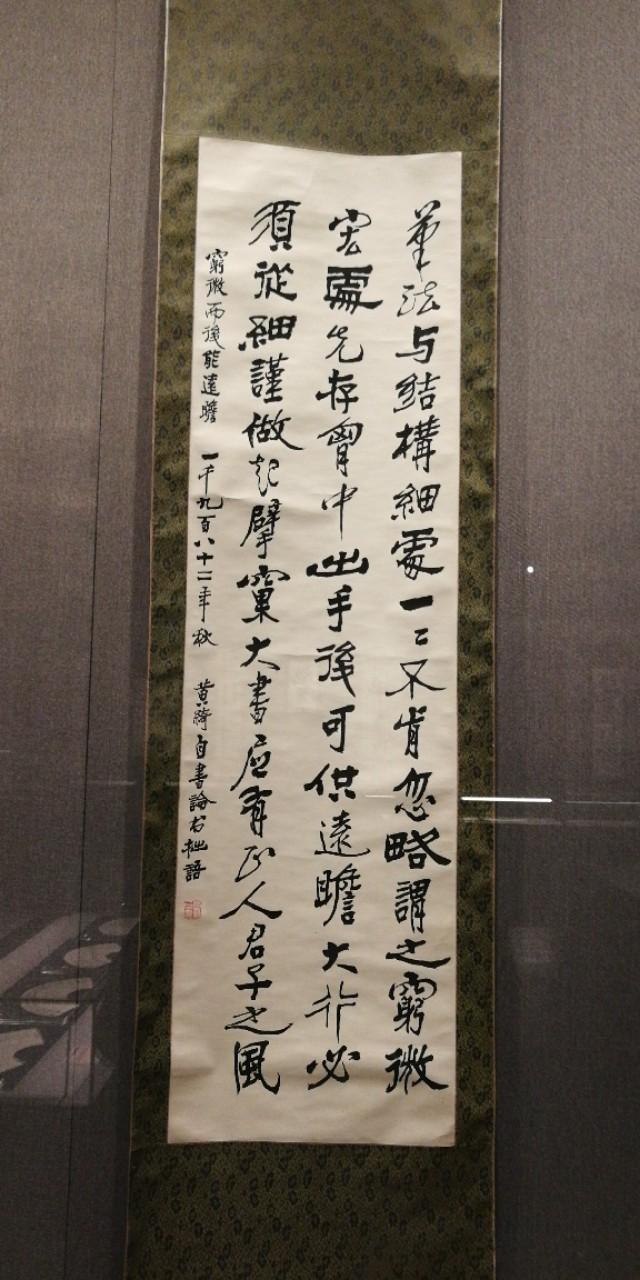 筆法与結構細處一二不肯忽略謂之窮微
宏處先存胷中出手後可供遠瞻大作必
須從細謹做起擘窠大書應有正人君子之風
窮微而後能遠瞻 一千九百八十二年秋 黄綺自書論书拙語